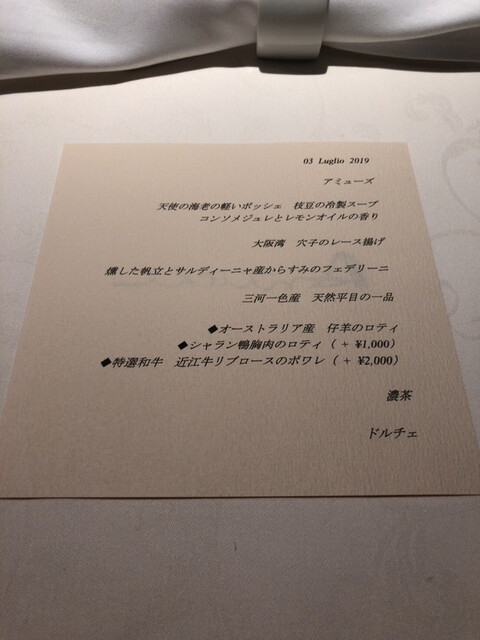 03 Luglio 2019
アミューズ
天使の海老の軽いポッシェ 枝豆の冷製スープ
コンソメジュレとレモンオイルの香り
大阪湾 穴子のレース揚げ
燻した帆立とサルディーニャ産からすみのフェデリーニ
三河一色産 天然平目の一品
◆オーストラリア産 仔羊のロティ
◆シャラン鴨胸肉のロティ ( + ¥1,000)
◆特選和牛 近江牛リブロースのポワレ ( + ¥2,000)
濃茶
ドルチェ